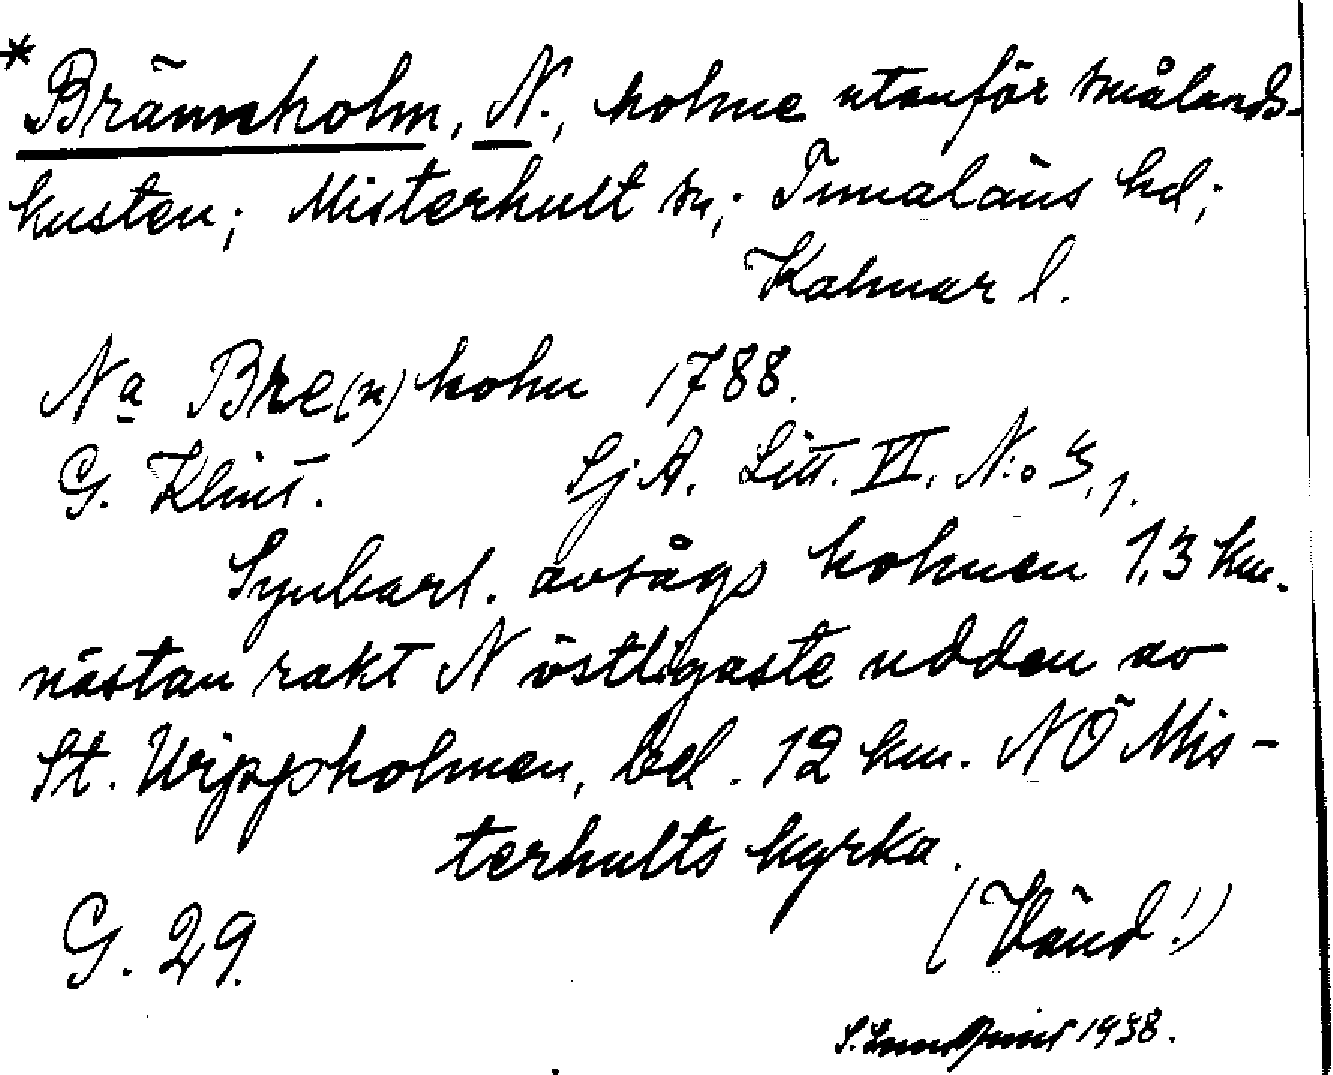 * Brännholm, N., holme utanför smålands-
kusten; Misterhult sn; Tunaläns hd;
Kalmar l.
Na Bre(n)holm 1788.
G. Klint. SjA. Litt. VI. N:o 3,1.
Synbarl. avsågs holmen 1,3 km.
nästan rakt N östligaste udden av
St. Wippholmen, bel. 12 km. NÖ Mis-
terhults kyrka.
(Vänd!)
G. 29.
S. Lundquist 1938.